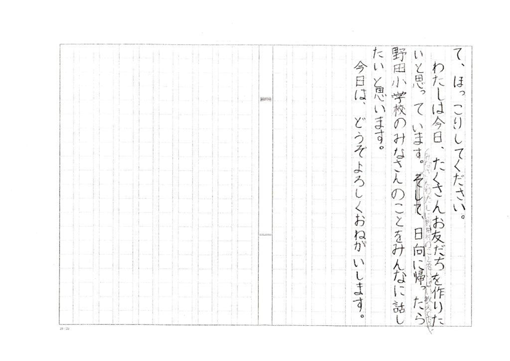 て、ほっこりしてください。
わたしは今日、たくさんお友だちを作りた
いと思っています。そして、日向に帰ったら
野田小学校のみなさんのことをみんなに話し
たいと思います。
今日は、どうぞよろしくおねがいします。